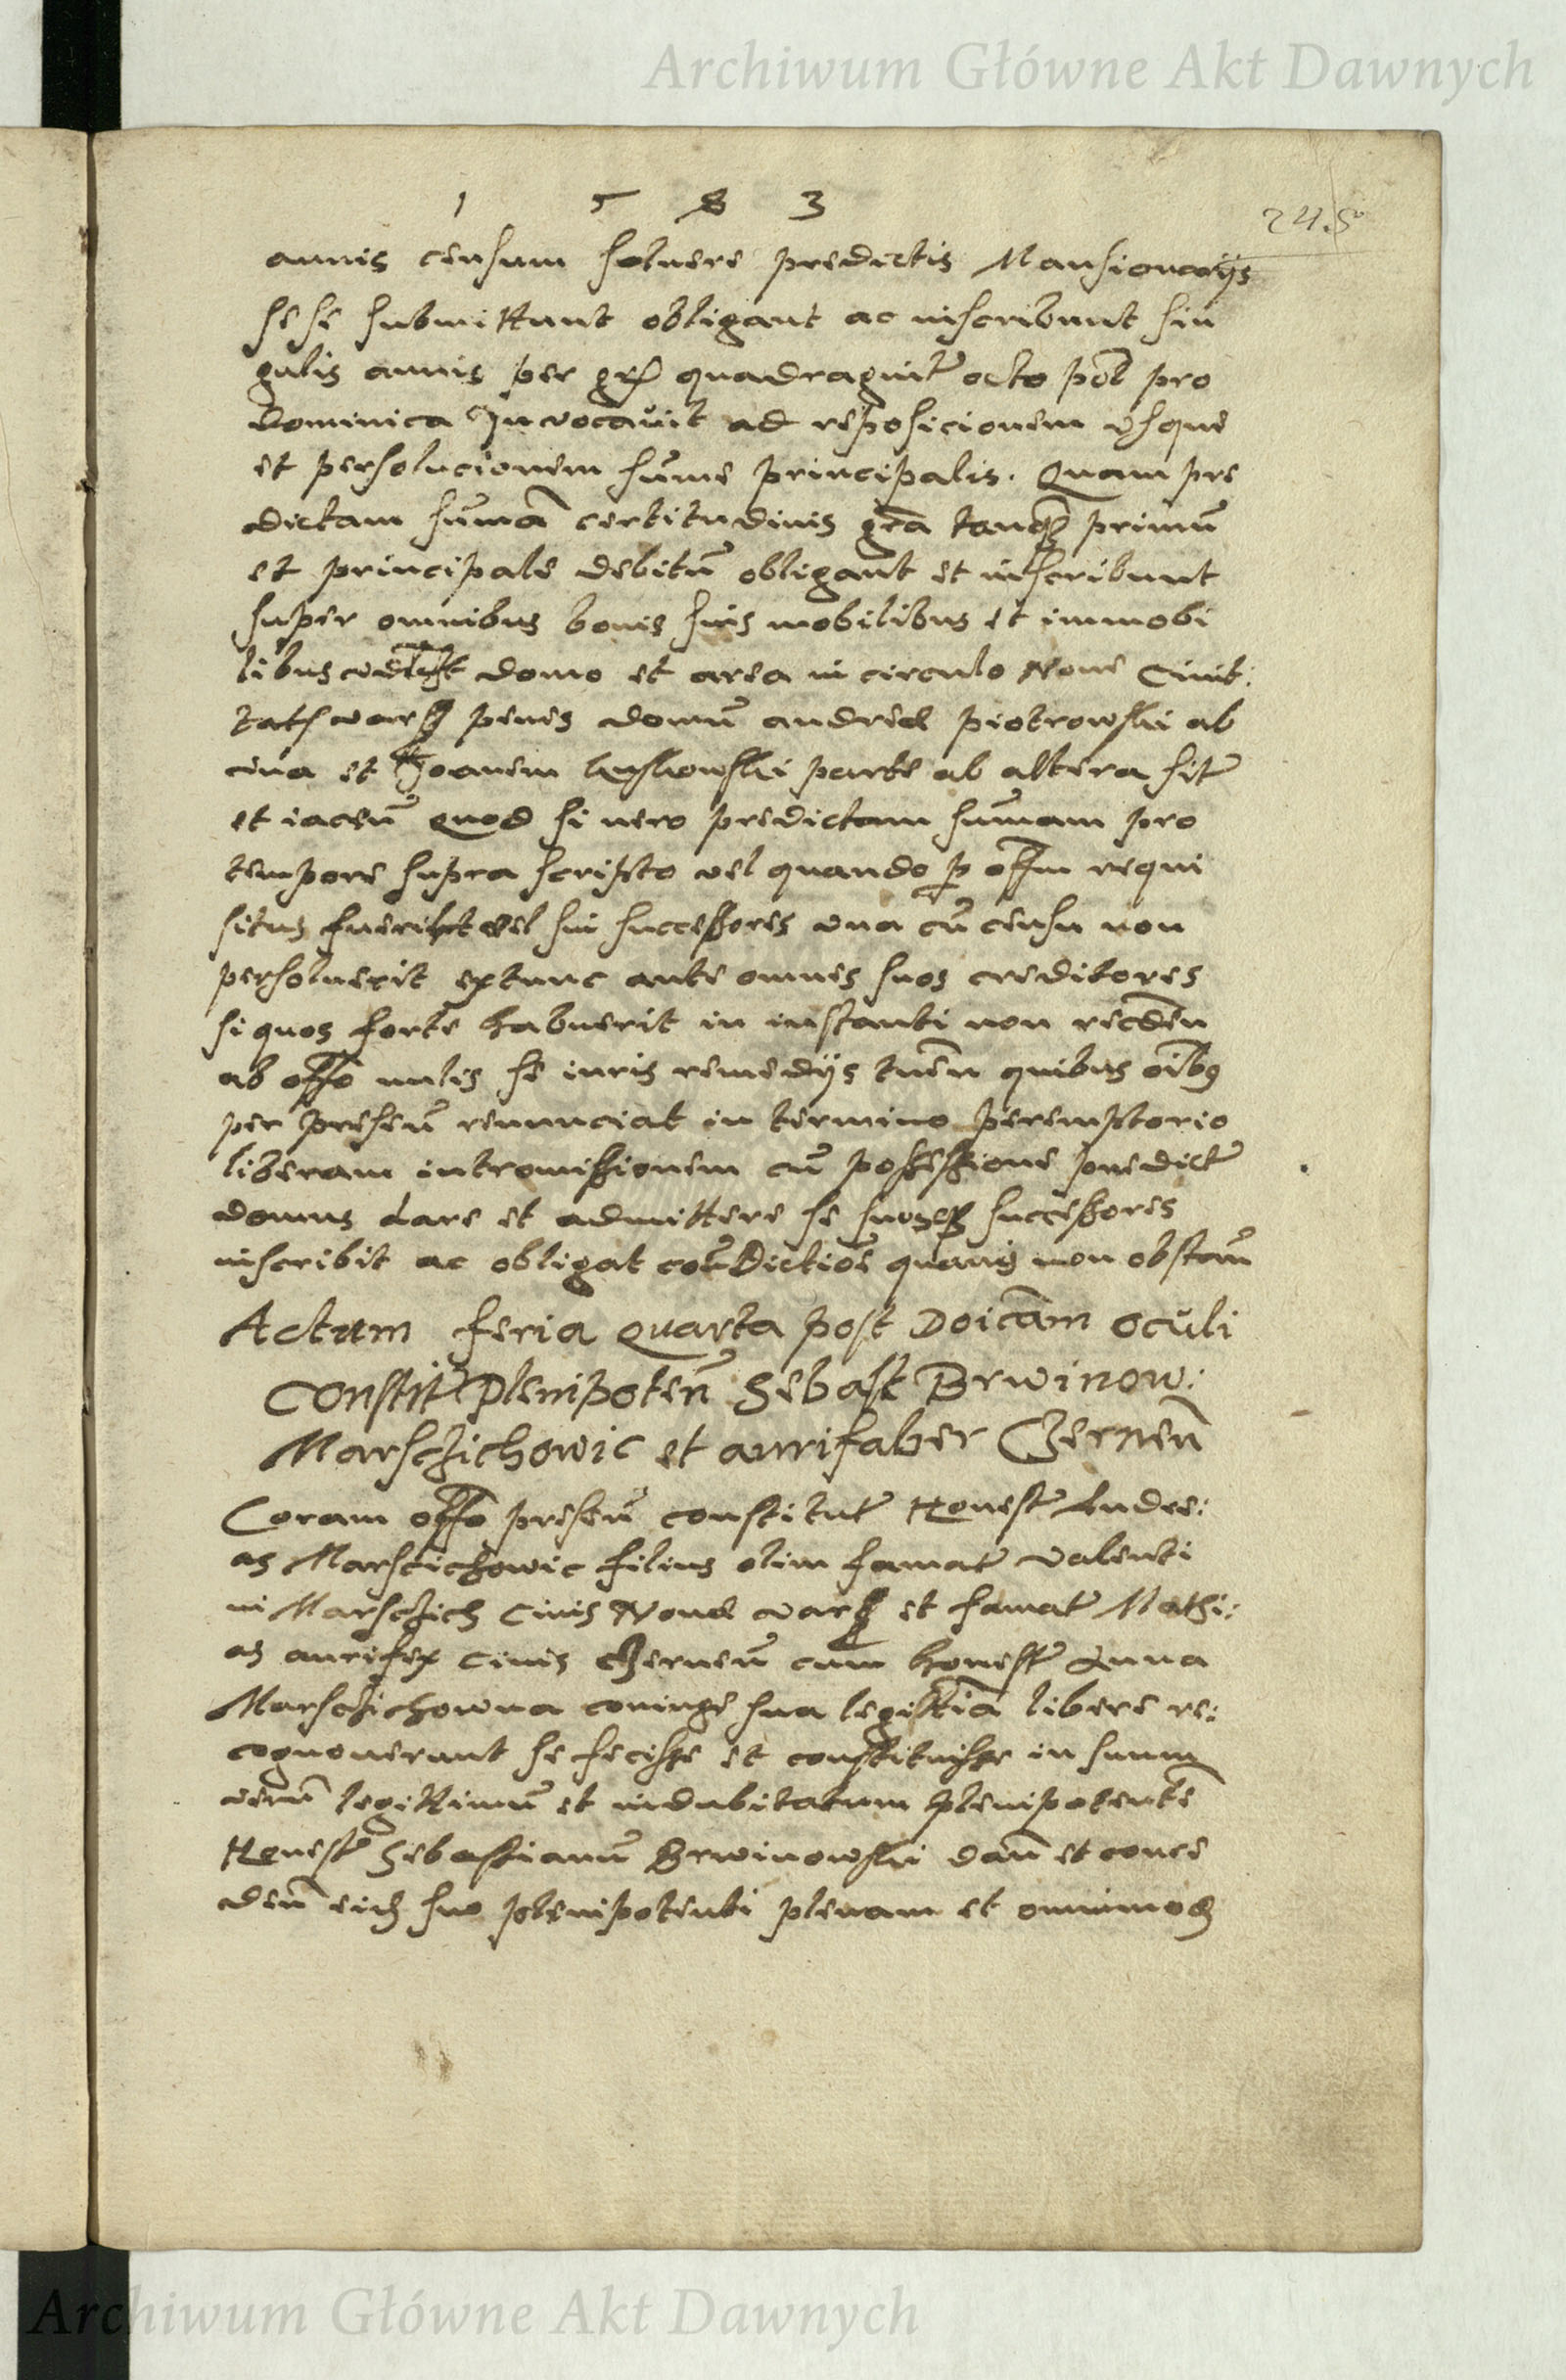 Archiwum Główne Akt Dawnych
1 5 8 3
245
annis censum soluere predictis Mansionarijs
se se submittunt obligant ac inscribunt sin
gulis annis per gr quadragint octo pol pro
Dominica Inuocauit ad reposicionem vsque
et persolucionem sume principalis. Quam pre
dictam sumã certitudinis grã tanq primũ
et principale debitũ obligant et inscribunt
super omnibus bonis suis mobilibus et immobi
libus domo et area in circulo Noue Ciuit:
penes domũ andreæ piotrowski ab
vna et Joanem parte ab altera sit
et iaceñ quod si uero predictam sumam pro
tempore supra scripto vel quando p offm requi
situs fuerit vel sui successores vna cũ censu non
persoluerit extunc ante omnes suos creditores
si quos forte habuerit in instanti non recdeñ
ab offo nulis se iuris remedijs tueñ quibus oibg
per preseñ renunciat in termino peremptorio
liberam intromissionem cũ possessione predict
domus dare et admittere se suosq successores
inscribit ac obligat coñdictioẽ quauis non obstañ
Actum feria quarta post Doicam oculi
Constit plenipoteñ Sebast Brwinow:
Marsczichowic et aurifaber Czerneñ
Coram offo preseñ constitut Honest Andre:
as Marscichowic filius olim famat valenti
ni Marsczich ciuis Nouæ warß et famat Mathi:
as aurifex ciuis Czerneñ cum honest Anna
Marsczichowna coniuge sua legittia libere re:
cognouerunt se fecisse et constituisse in suum
verũ legittimũ et indubitatum plenipotentẽ
Honest Sebastianũ Brwinowski dañ et conce
deñ eid suo plenipotenti plenam et omnimod
Archiwum Główne Akt Dawnych